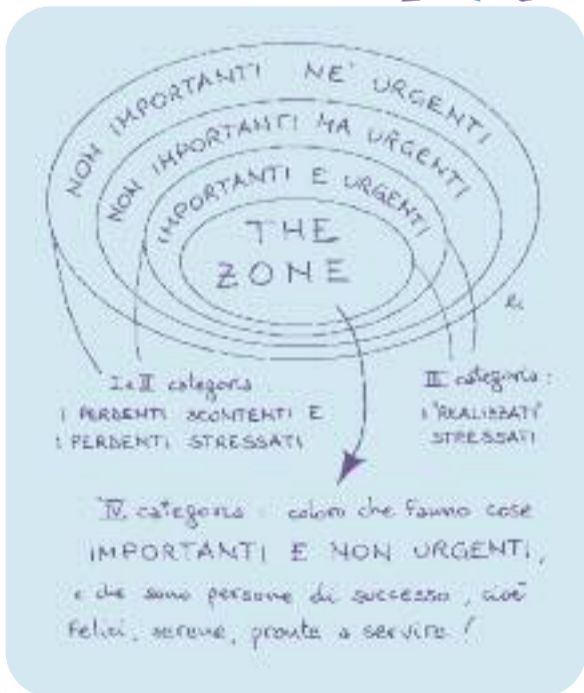 NON IMPORTANTI NE' URGENTI
NON IMPORTANTI MA URGENTI
IMPORTANTI E URGENTI
THE
ZONE
I e II categoria
I PERDENTI SCONTENTI E
I PERDENTI STRESSATI
III categoria:
I "REALIZZATI"
STRESSATI
IV categoria: coloro che fanno cose
IMPORTANTI E NON URGENTI,
e che sono persone di successo, cioè
felici, serene, pronte a servire!